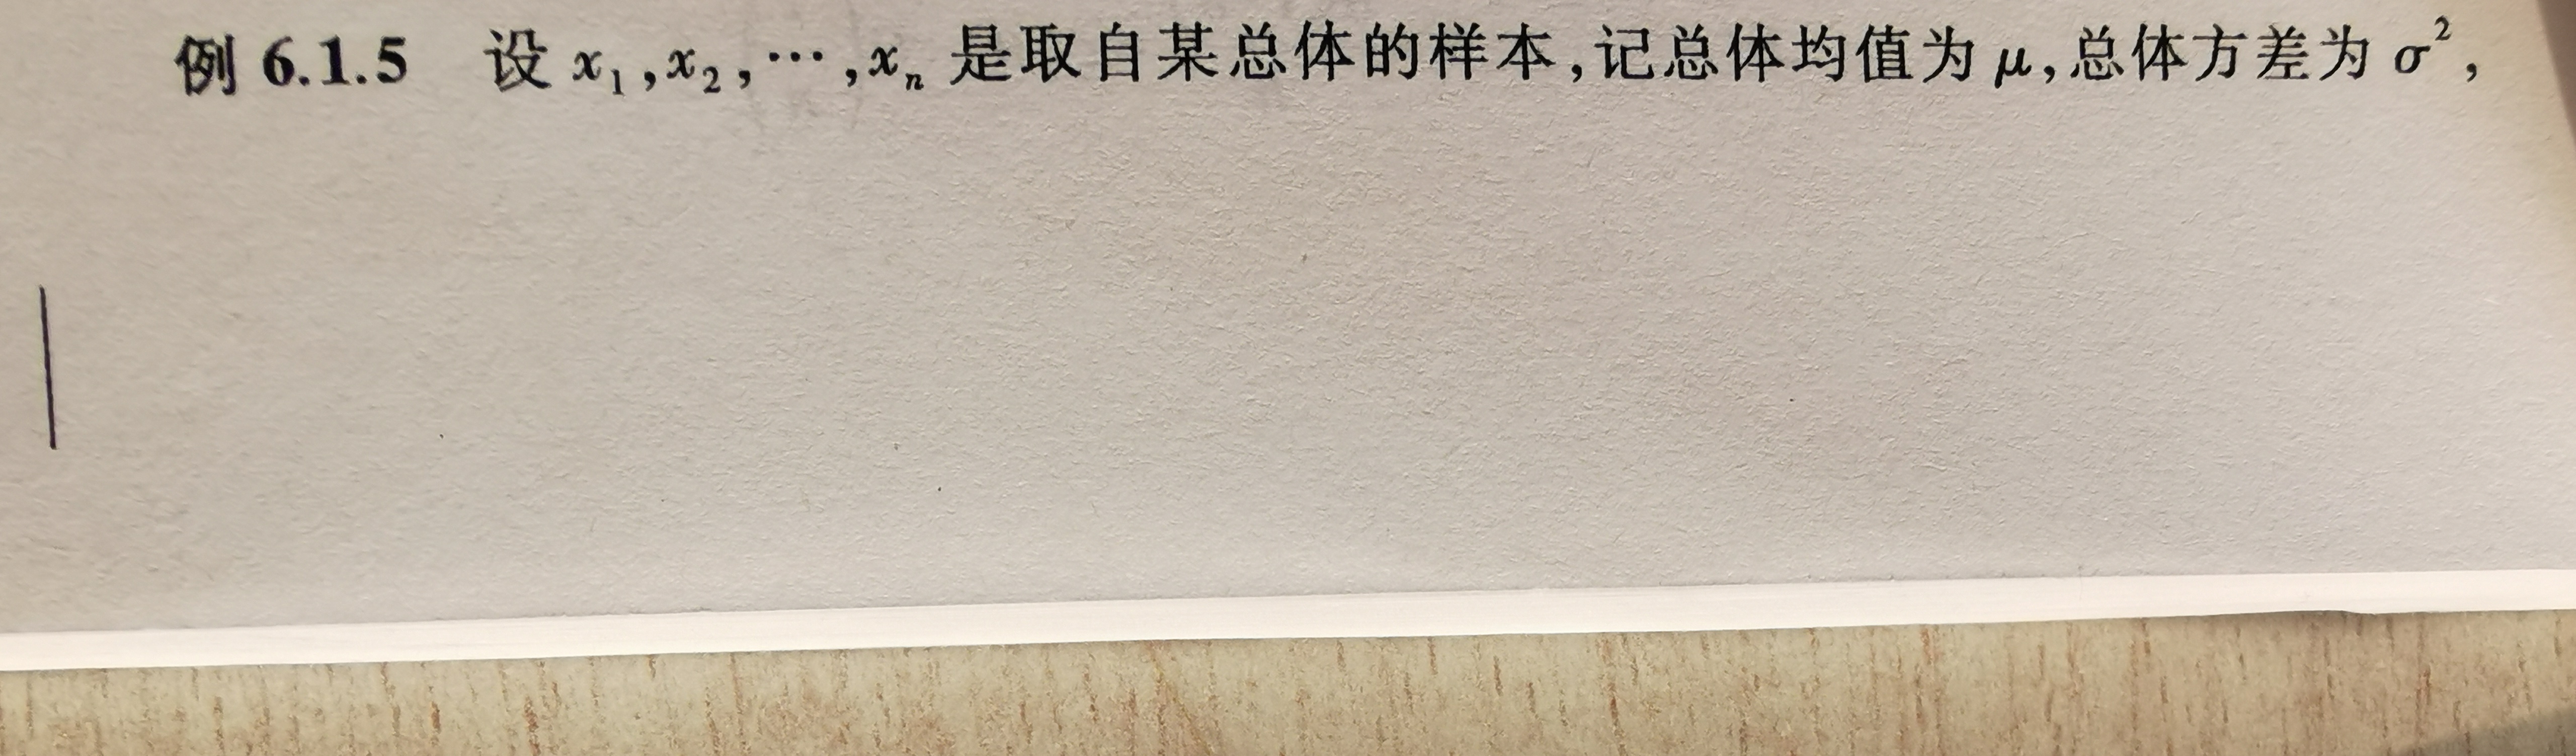 例 6.1.5 设 x₁,x₂,⋯,xₙ 是取自某总体的样本,记总体均值为 μ,总体方差为 σ²,